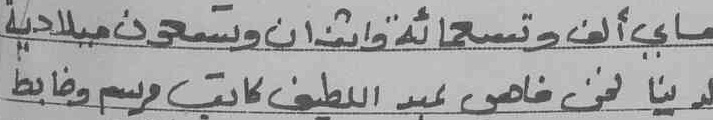 ماي ألف وتسعمائة واثنان وتسعون ميلادية
لدينا نحن فاهي عبد اللطيف كاتب مرسم وضابط